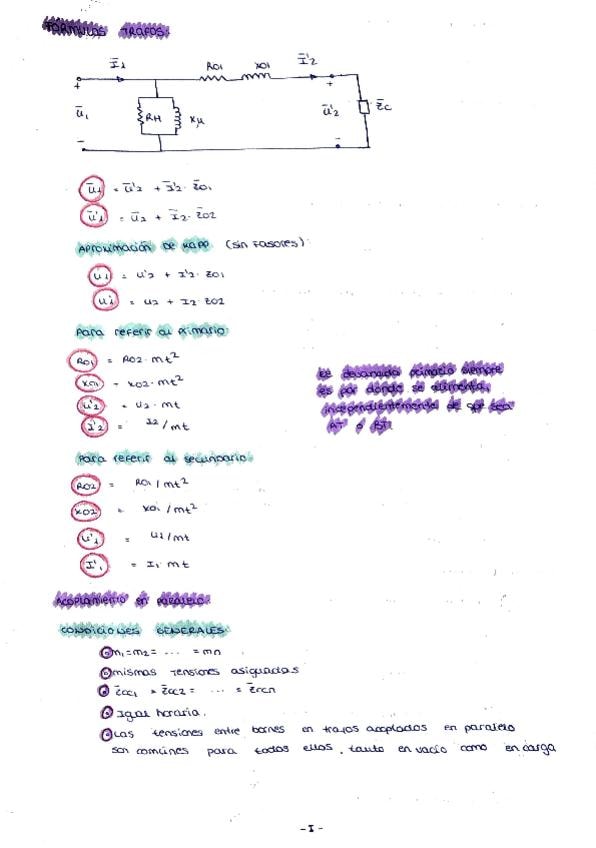 FÓRMULAS TRAFOS:
Ī1 R01 X01 Ī'2
+ +
ū1 RH Xμ ū'2 z̄c
- -
ū1 = ū'2 + Ī'2 · z̄01
ū'1 = ū2 + Ī2 · z̄02
Aproximación de Kapp (sin fasores):
u1 = u'2 + I'2 · z01
u'1 = u2 + I2 · z02
Para referir al primario:
R01 = R02 · mt²
X01 = X02 · mt²
u'2 = u2 · mt
I'2 = I2/mt
El devanado primario siempre
es por donde se alimenta,
independientemente de que sea
AT o BT
Para referir al secundario:
R02 = R01 / mt²
X02 = X01 / mt²
u'1 = u1/mt
I'1 = I1 · mt
Acoplamiento en paralelo:
CONDICIONES GENERALES:
m1=m2= ... =mn
mismas tensiones asignadas
z̄cc1 = z̄cc2 = ... = z̄ccn
Igual horaria.
Las tensiones entre bornes en trafos acoplados en paralelo
son comunes para todos ellos, tanto en vacío como en carga
- I -